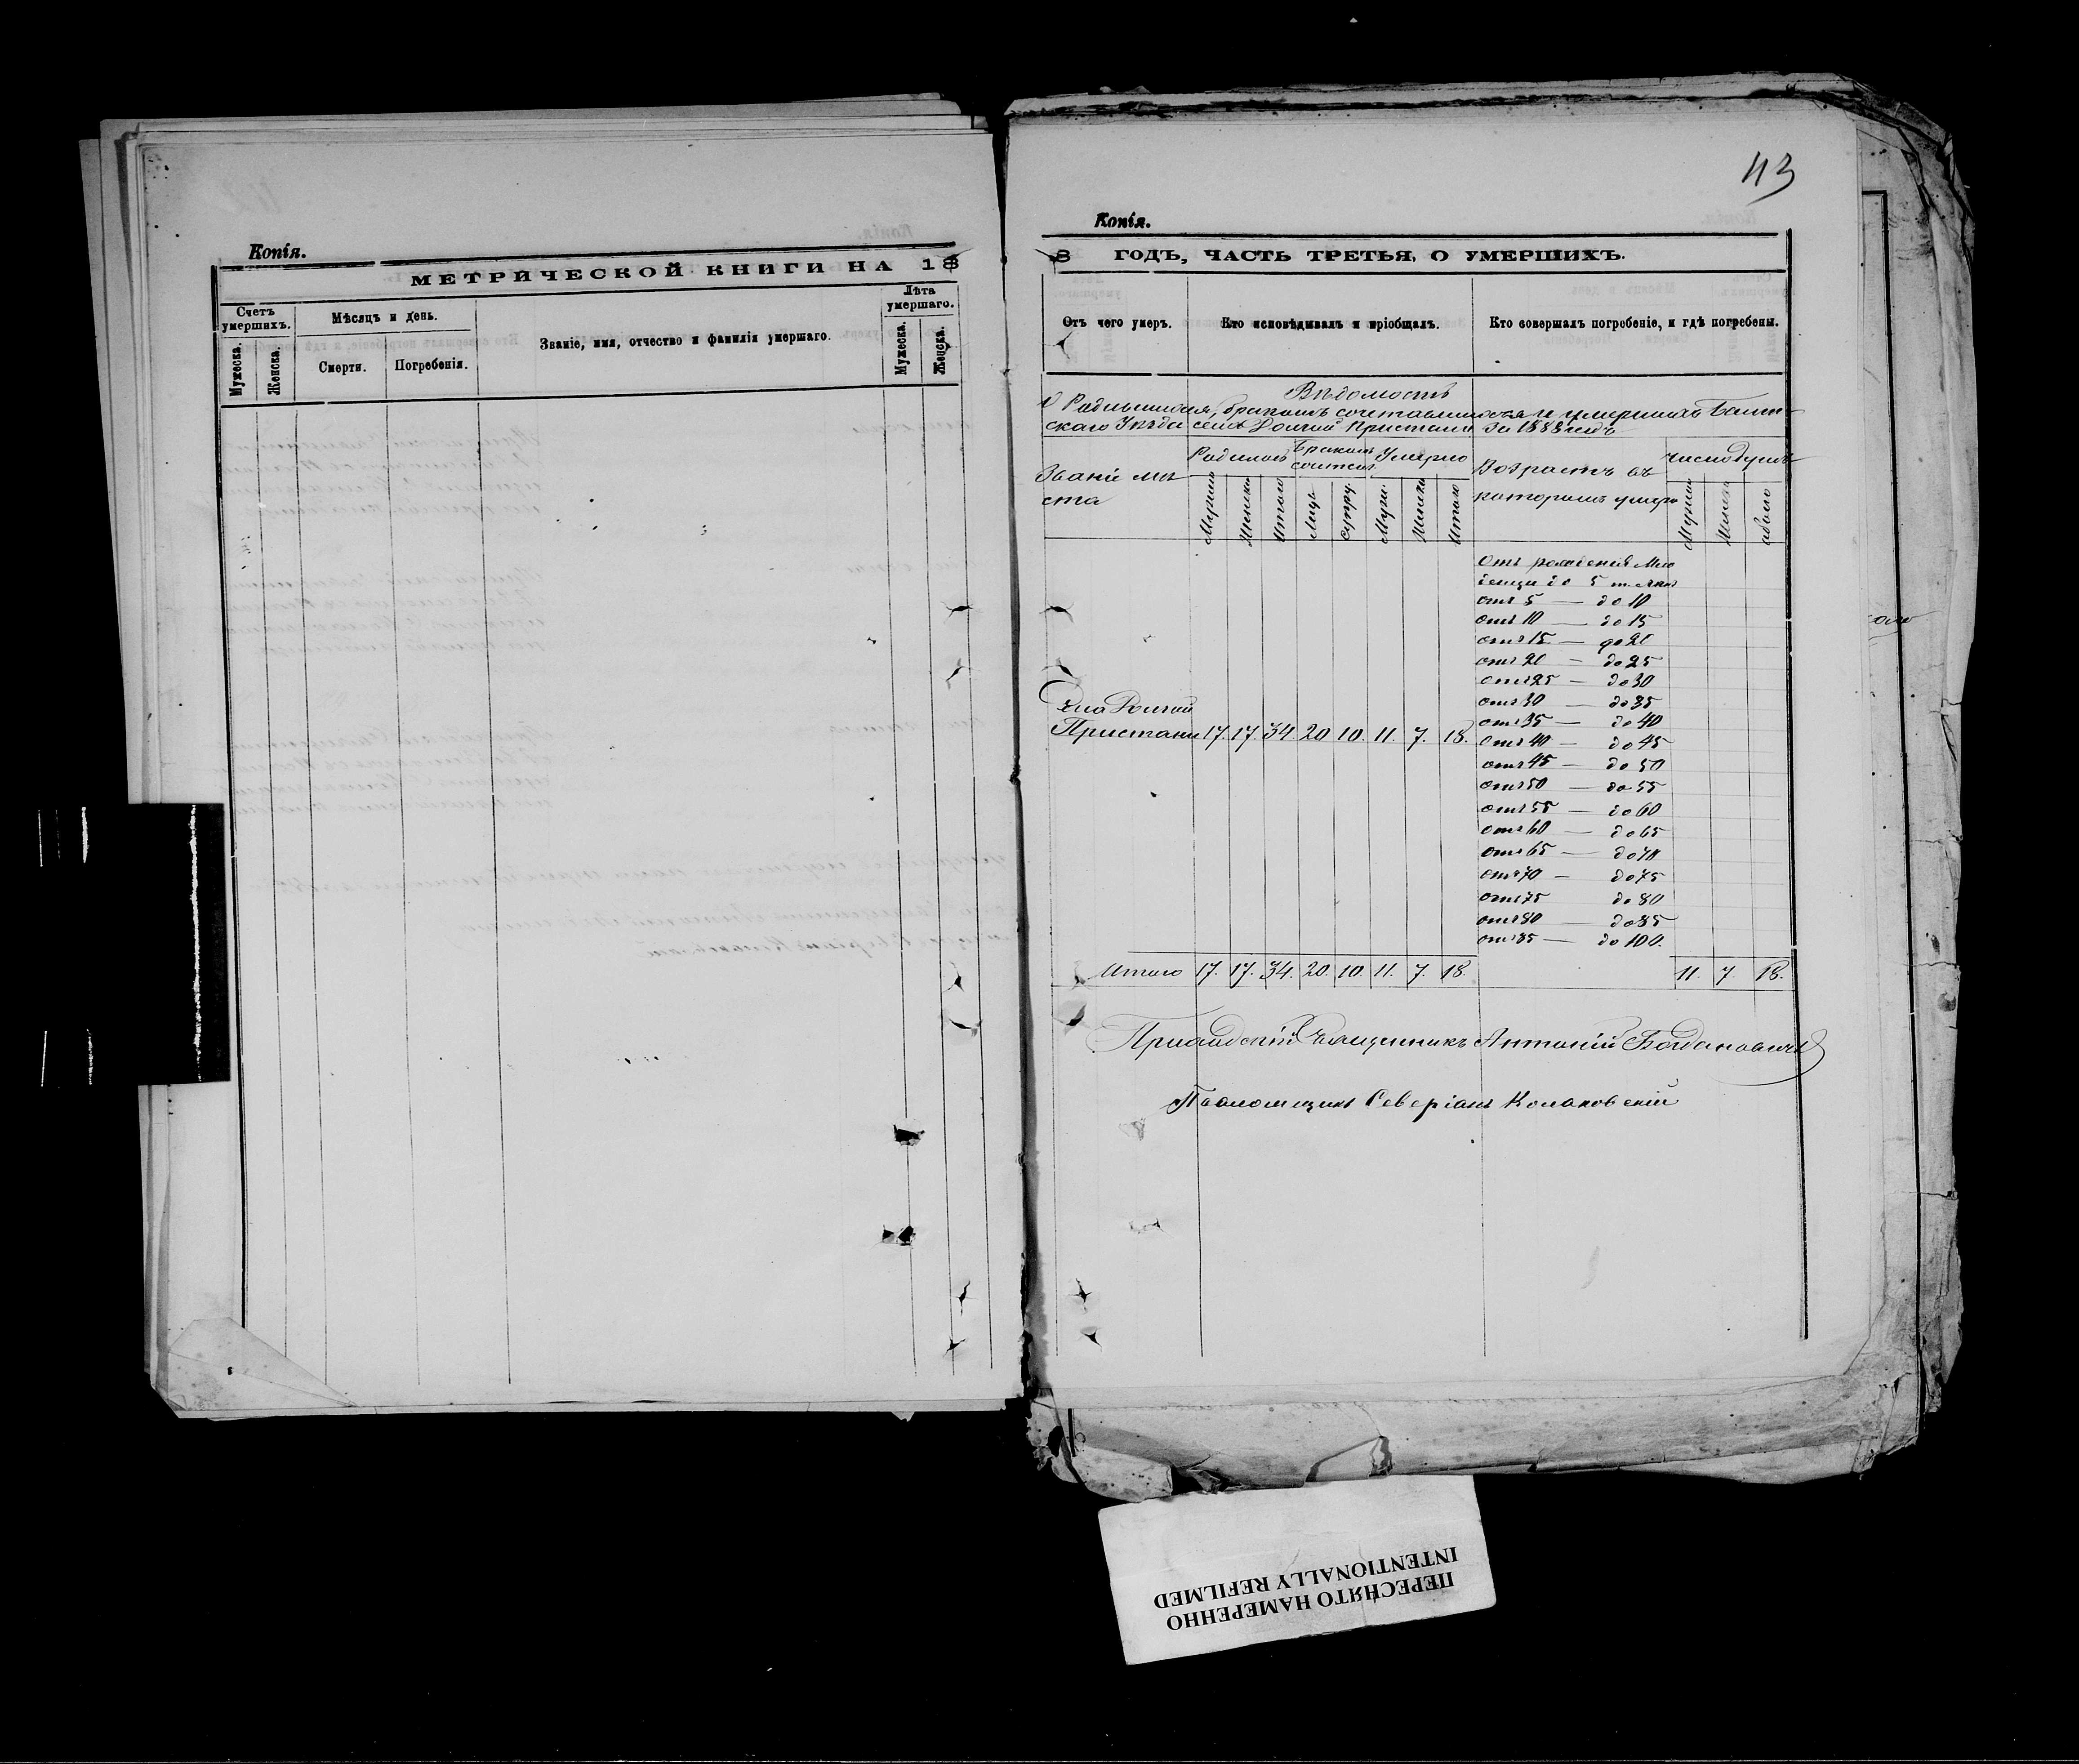 43
Копія.
МЕТРИЧЕСКОЙ КНИГИ НА 18
Счетъ умершихъ.
Мѣсяцъ и день.
Званіе, имя, отчество и фамилія умершаго.
Лѣта умершаго.
Мужеска.
Женска.
Смерти.
Погребенія.
Мужеска.
Женска.
Копія.
8 ГОДЪ, ЧАСТЬ ТРЕТЬЯ, О УМЕРШИХЪ.
Отъ чего умеръ.
Кто исповѣдывалъ и пріобщалъ.
Кто совершалъ погребеніе, и гдѣ погребены.
Вѣдомость
О Родившихся, бракомъ сочетавшихся и умершихъ
скаго Уѣзда села Пристани За 1888 годъ
Званіе мѣ
ста
Родилось
Бракомъ
сочетал.
Умерло
Возрастъ въ
которомъ умерло
число душъ
Мужеск
Женска
Итого
Лицъ
супру.
Мужи.
Женска
Итого
Мужеск
Женска
обоего
Отъ рожденія Мла
денцы до 5 т. лѣтъ
отъ 5 — до 10
отъ 10 — до 15
отъ 15 — до 20
отъ 20 — до 25
отъ 25 — до 30
отъ 30 — до 35
отъ 35 — до 40
отъ 40 — до 45
отъ 45 — до 50
отъ 50 — до 55
отъ 55 — до 60
отъ 60 — до 65
отъ 65 — до 70
отъ 70 — до 75
отъ 75 до 80
отъ 80 — до 85
отъ 85 — до 100.
Села
Пристани 17. 17. 34. 20 10. 11. 7. 18.
Итого 17. 17. 34. 20. 10. 11. 7. 18. 11. 7. 18.
Приходскій Священникъ Антоній Богдановичъ
Псаломщикъ Северіанъ Колаковскій
ПЕРЕСНЯТО НАМЕРЕННО
INTENTIONALLY REFILMED